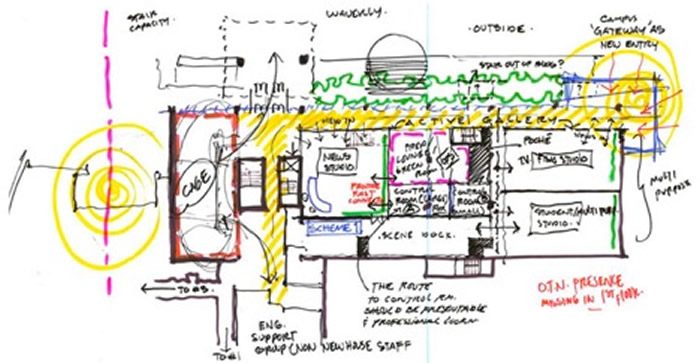 STAIR
CAPACITY.
WAVERLY.
OUTSIDE.
CAMPUS
'GATEWAY' AS
NEW ENTRY
STAIR OUT OF BLDG?
VIEW IN
ACTIVE GALLERY
CAGE
NEWS
STUDIO
PREP
GREEN
ROOM
CONTROL
ROOM (LARGE)
CONTROL
ROOM
SMALL
TV
FILM STUDIO
POCHÉ
STUDENT/MULTI PURP.
STUDIO.
MULTI
PURPOSE
SCHEME 1
SCENE DOCK.
THE ROUTE
TO CONTROL RM.
SHOULD BE PRESENTABLE
& PROFESSIONAL LOOKING
O.T.N. PRESENCE
MISSING IN 1ST FLOOR.
TO #3.
ENG.
SUPPORT
GROUP (NON NEWHOUSE STAFF
TO #1